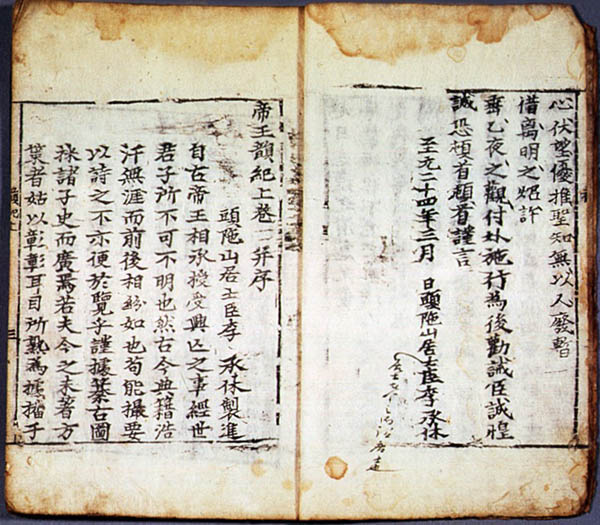 心伏望優推聖知無以人廢暫
借离明之炤許
垂乙夜之觀付外施行為後勸誡臣誠惶
誠恐頓首頓首謹言
至元二十四年三月 日頭陁山居士臣李承休
帝王韻紀上卷 幷序
頭陁山居士臣李 承休製進
自古帝王相承授受興亡之事經世
君子所不可不明也然古今典籍浩
汗無涯而前後相紛如也苟能撮要
以詩之不亦便於覽乎謹據纂古圖
採諸子史而廣焉若夫今之未著方
策者姑以彰彰耳目所熟為據播于